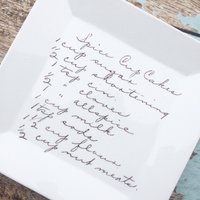 Spice Cup Cakes
1 cup sugar
1/2 cup shortening
1 tsp cin.
1 " cloves
1 " allspice
1 cup milk
1 tsp soda
2 cup flour
1/2 cup nut meats